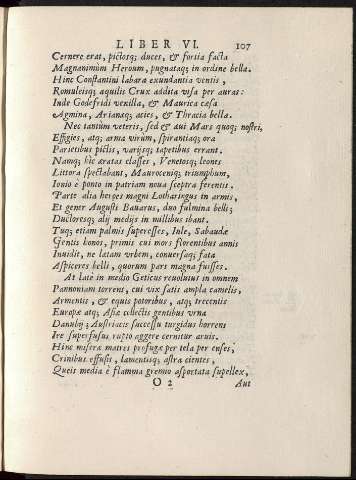 LIBER VI. 107
Cernere erat, pictosq; duces, & fortia facta
Magnanimûm Heroum, pugnataq; in ordine bella.
Hinc Constantini labara exundantia ventis,
Romuleisq; aquilis Crux addita visa per auras:
Inde Godefridi vexilla, & Maurica cæsa
Agmina, Arianaq; acies, & Thracia bella.
Nec tantùm veteris, sed & aui Mars quoq; nostri,
Effigies, atq; arma virûm, spirantiaq; ora
Parietibus pictis, varijsq; tapetibus errant.
Namq; hìc æratas classes, Venetosq; leones
Littora spectabant, Mauroceniq; triumphum,
Ionio è ponto in patriam noua sceptra ferentis.
Parte alia heros magni Lotharingus in armis,
Et gener Augusti Bauarus, duo fulmina belli;
Ductoresq; alij medijs in millibus ibant.
Tuq; etiam palmis superesses, Inle, Sabaudæ
Gentis honos, primis cui mors florentibus annis
Inuidit, ne latam vrbem, conuersaq; fata
Aspiceres belli, quorum pars magna fuisses.
At late in medio Geticus reuolutus in omnem
Pannoniam torrens, cui vix satis ampla camelis,
Armentis, & equis potoribus, atq; trecentis
Europæ atq; Asiæ collectis gentibus vrna
Danubij; Austriacis successu turgidus horrens
Ire superfusus rupto aggere cernitur aruis.
Hinc miseræ matres profugæ per tela per enses,
Crinibus effusis, lamentisq; astra cientes,
Queis media è flamma gremio asportata supellex,
O 2 Aut